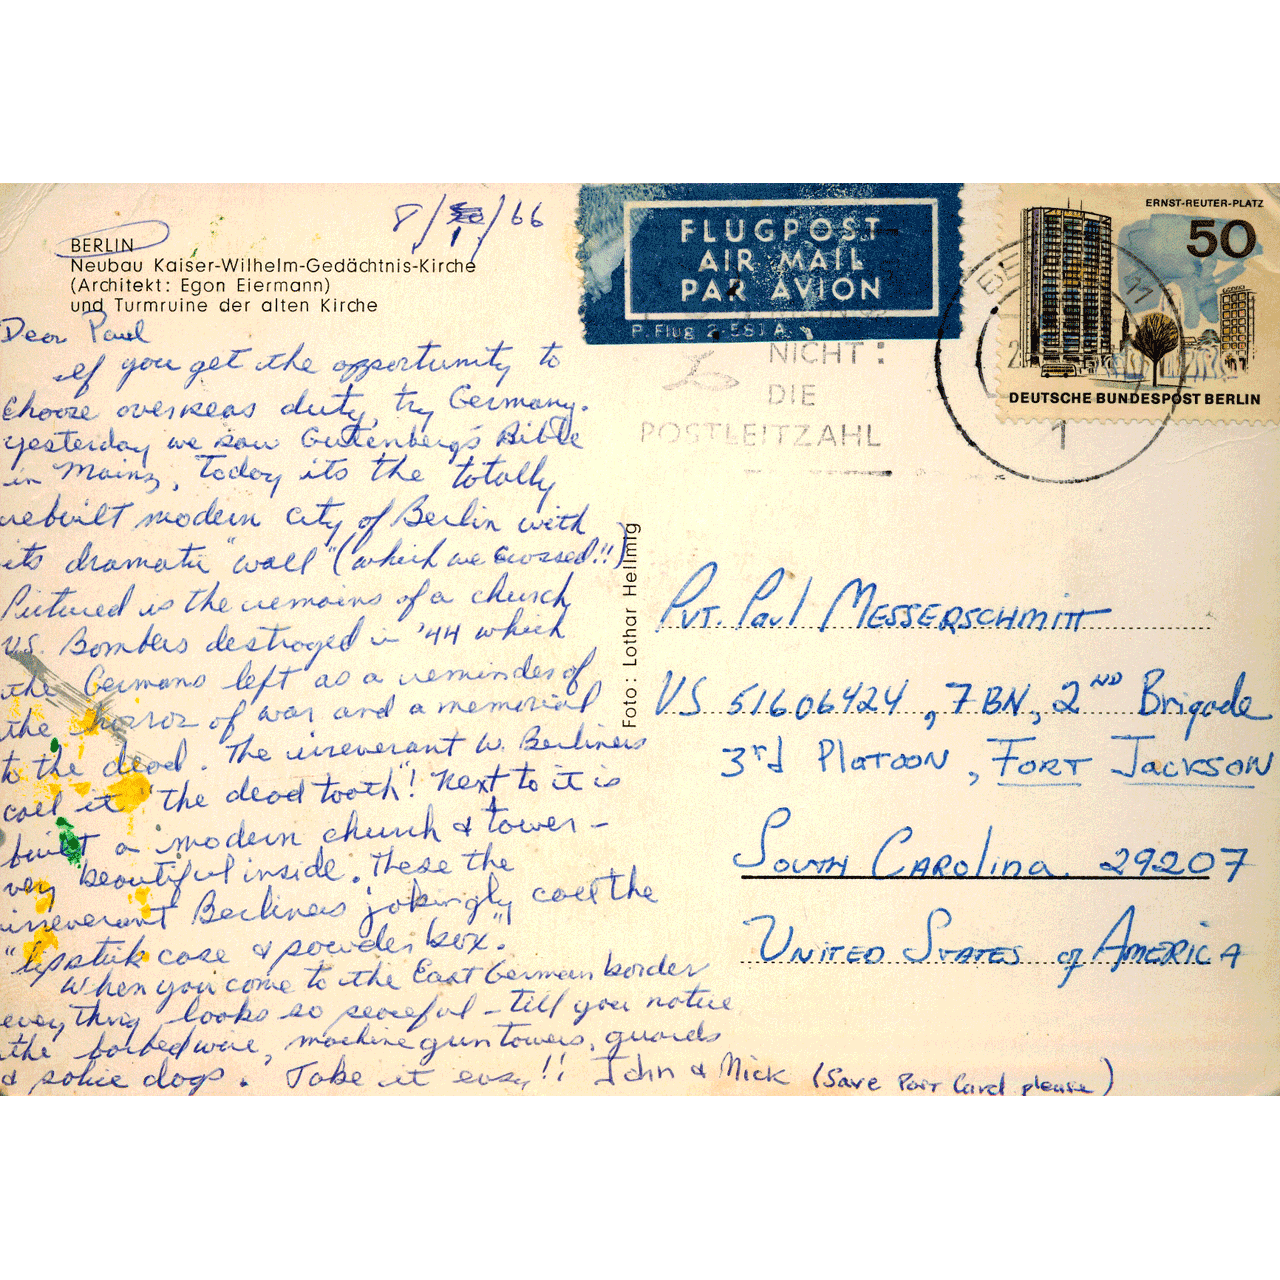 8/1/66
BERLIN
Neubau Kaiser-Wilhelm-Gedächtnis-Kirche
(Architekt: Egon Eiermann)
und Turmruine der alten Kirche
Dear Paul
If you get the opportunity to
choose overseas duty, try Germany.
yesterday we saw Gutenberg's Bible
in Mainz, Today its the totally
rebuilt modern city of Berlin with
its dramatic "wall" (which we crossed!!)
Pictured is the remains of a church
U.S. Bombers destroyed in '44 which
the Germans left as a reminder of
the horror of war and a memorial
to the dead. The irreverant W. Berliners
call it "the dead tooth"! Next to it is
built a modern church & tower –
very beautiful inside. These the
irreverant Berliners jokingly call the
"lipstick case & powder box".
When you come to the East German border
everything looks so peaceful – till you notice
the barbed wire, machine gun towers, guards
& police dogs. Take it easy!! John & Nick (Save Post Card please)
FLUGPOST
AIR MAIL
PAR AVION
P. Flug 2 581A
NICHT:
DIE
POSTLEITZAHL
BERLIN 11
1
ERNST-REUTER-PLATZ
50
DEUTSCHE BUNDESPOST BERLIN
Foto: Lothar Hellmig
Pvt. Paul Messerschmitt
US 51606424, 7 BN, 2ND Brigade
3rd Platoon, Fort Jackson
South Carolina 29207
United States of America